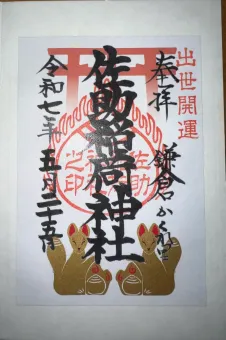 出世開運
奉拝
鎌倉かくれ里
佐助稲荷神社
佐助
稲荷
神社
之印
令和七年
五月二十五日